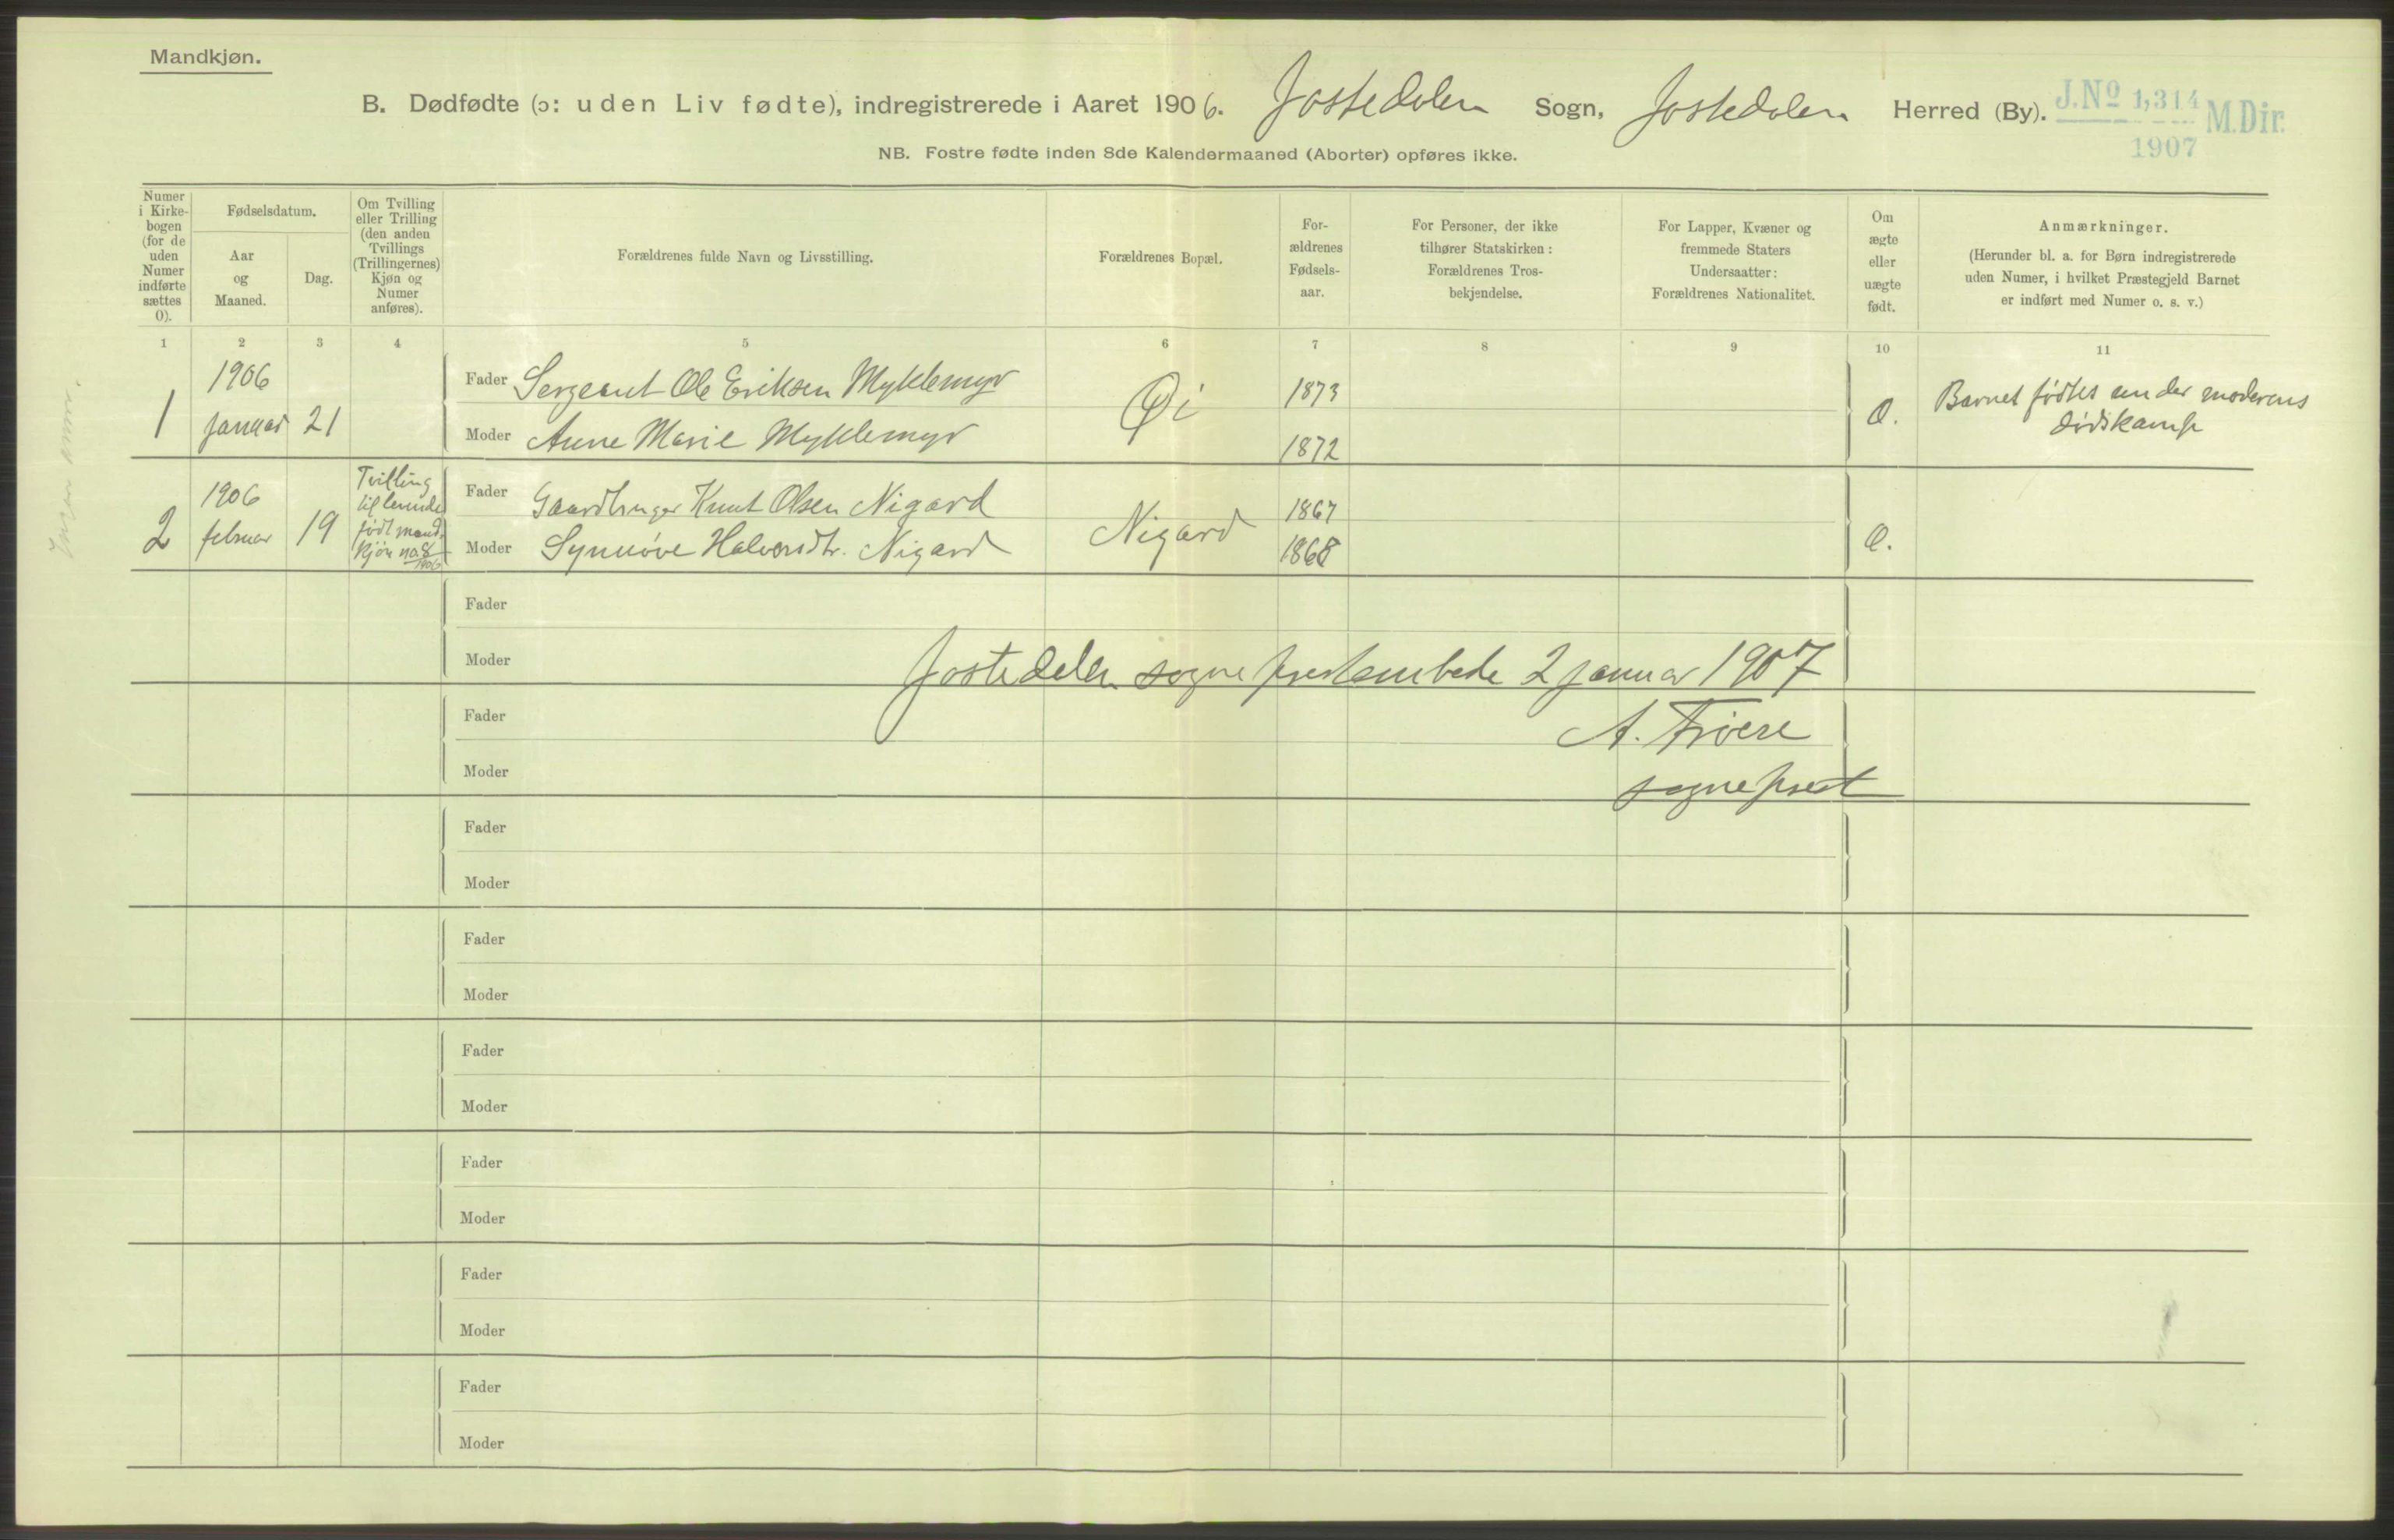 Mandkjøn.
B. Dødfødte (ɔ: uden Liv fødte), indregistrerede i Aaret 1906. Jostedalen Sogn, Jostedalen Herred (By).
J.Nº 1,314 M.Dir.
1907
NB. Fostre fødte inden 8de Kalendermaaned (Aborter) opføres ikke.
Numer
i Kirke-
bogen
(for de
uden
Numer
indførte
sættes
0).
Fødselsdatum.
Aar
og
Maaned.
Dag.
Om Tvilling
eller Trilling
(den anden
Tvillings
(Trillingernes)
Kjøn og
Numer
anføres).
Forældrenes fulde Navn og Livsstilling.
Forældrenes Bopæl.
For-
ældrenes
Fødsels-
aar.
For Personer, der ikke
tilhører Statskirken:
Forældrenes Tros-
bekjendelse.
For Lapper, Kvæner og
fremmede Staters
Undersaatter:
Forældrenes Nationalitet.
Om
ægte
eller
uægte
født.
Anmærkninger.
(Herunder bl. a. for Børn indregistrerede
uden Numer, i hvilket Præstegjeld Barnet
er indført med Numer o. s. v.)
1 2 3 4 5 6 7 8 9 10 11
1
1906
januar 21
Fader Sergeant Ole Eriksen Myklemyr
Moder Anne Marie Myklemyr
Øi
1873
1872
Barnet fødtes under moderens
dødskamp
2
1906
februar 19
Tvilling
til levende
født mand
kjøn no 8
1906
Fader Gaardbruger Knut Olsen Nigard
Moder Synnøve Halvorsdtr. Nigard
Nigard
1867
1868
Fader
Moder
Jostedalen sogneprestembede 2 januar 1907
Fader
A.
Moder
sogneprest
Fader
Moder
Fader
Moder
Fader
Moder
Fader
Moder
Fader
Moder
Fader
Moder